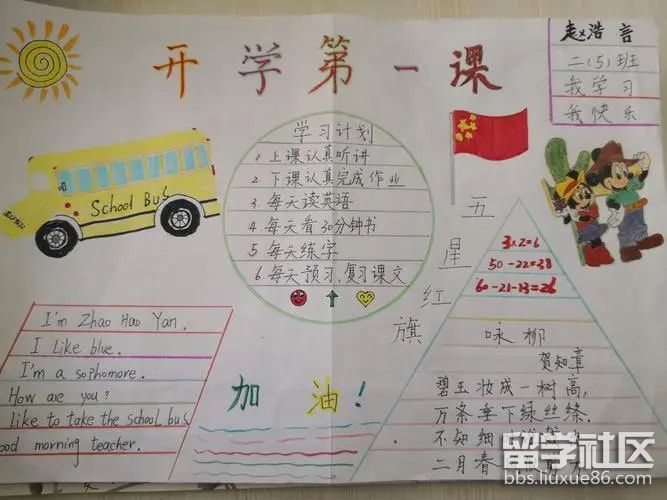 开学第一课
赵浩言
二(5)班
我学习
我快乐
School Bus
学习计划
1.上课认真听讲
2.下课认真完成作业
3.每天读英语
4.每天看30分钟书
5.每天练字
6.每天预习、复习课文
五星红旗
3×2=6
50-22=28
60-21-13=26
咏柳
贺知章
碧玉妆成一树高,
万条垂下绿丝绦。
不知细
二月春
I'm Zhao Hao Yan.
I Like blue.
I'm a sophomore.
How are you?
like to take the school bus
ood morning teacher.
加油!
留学社区
bbs.liuxue86.com